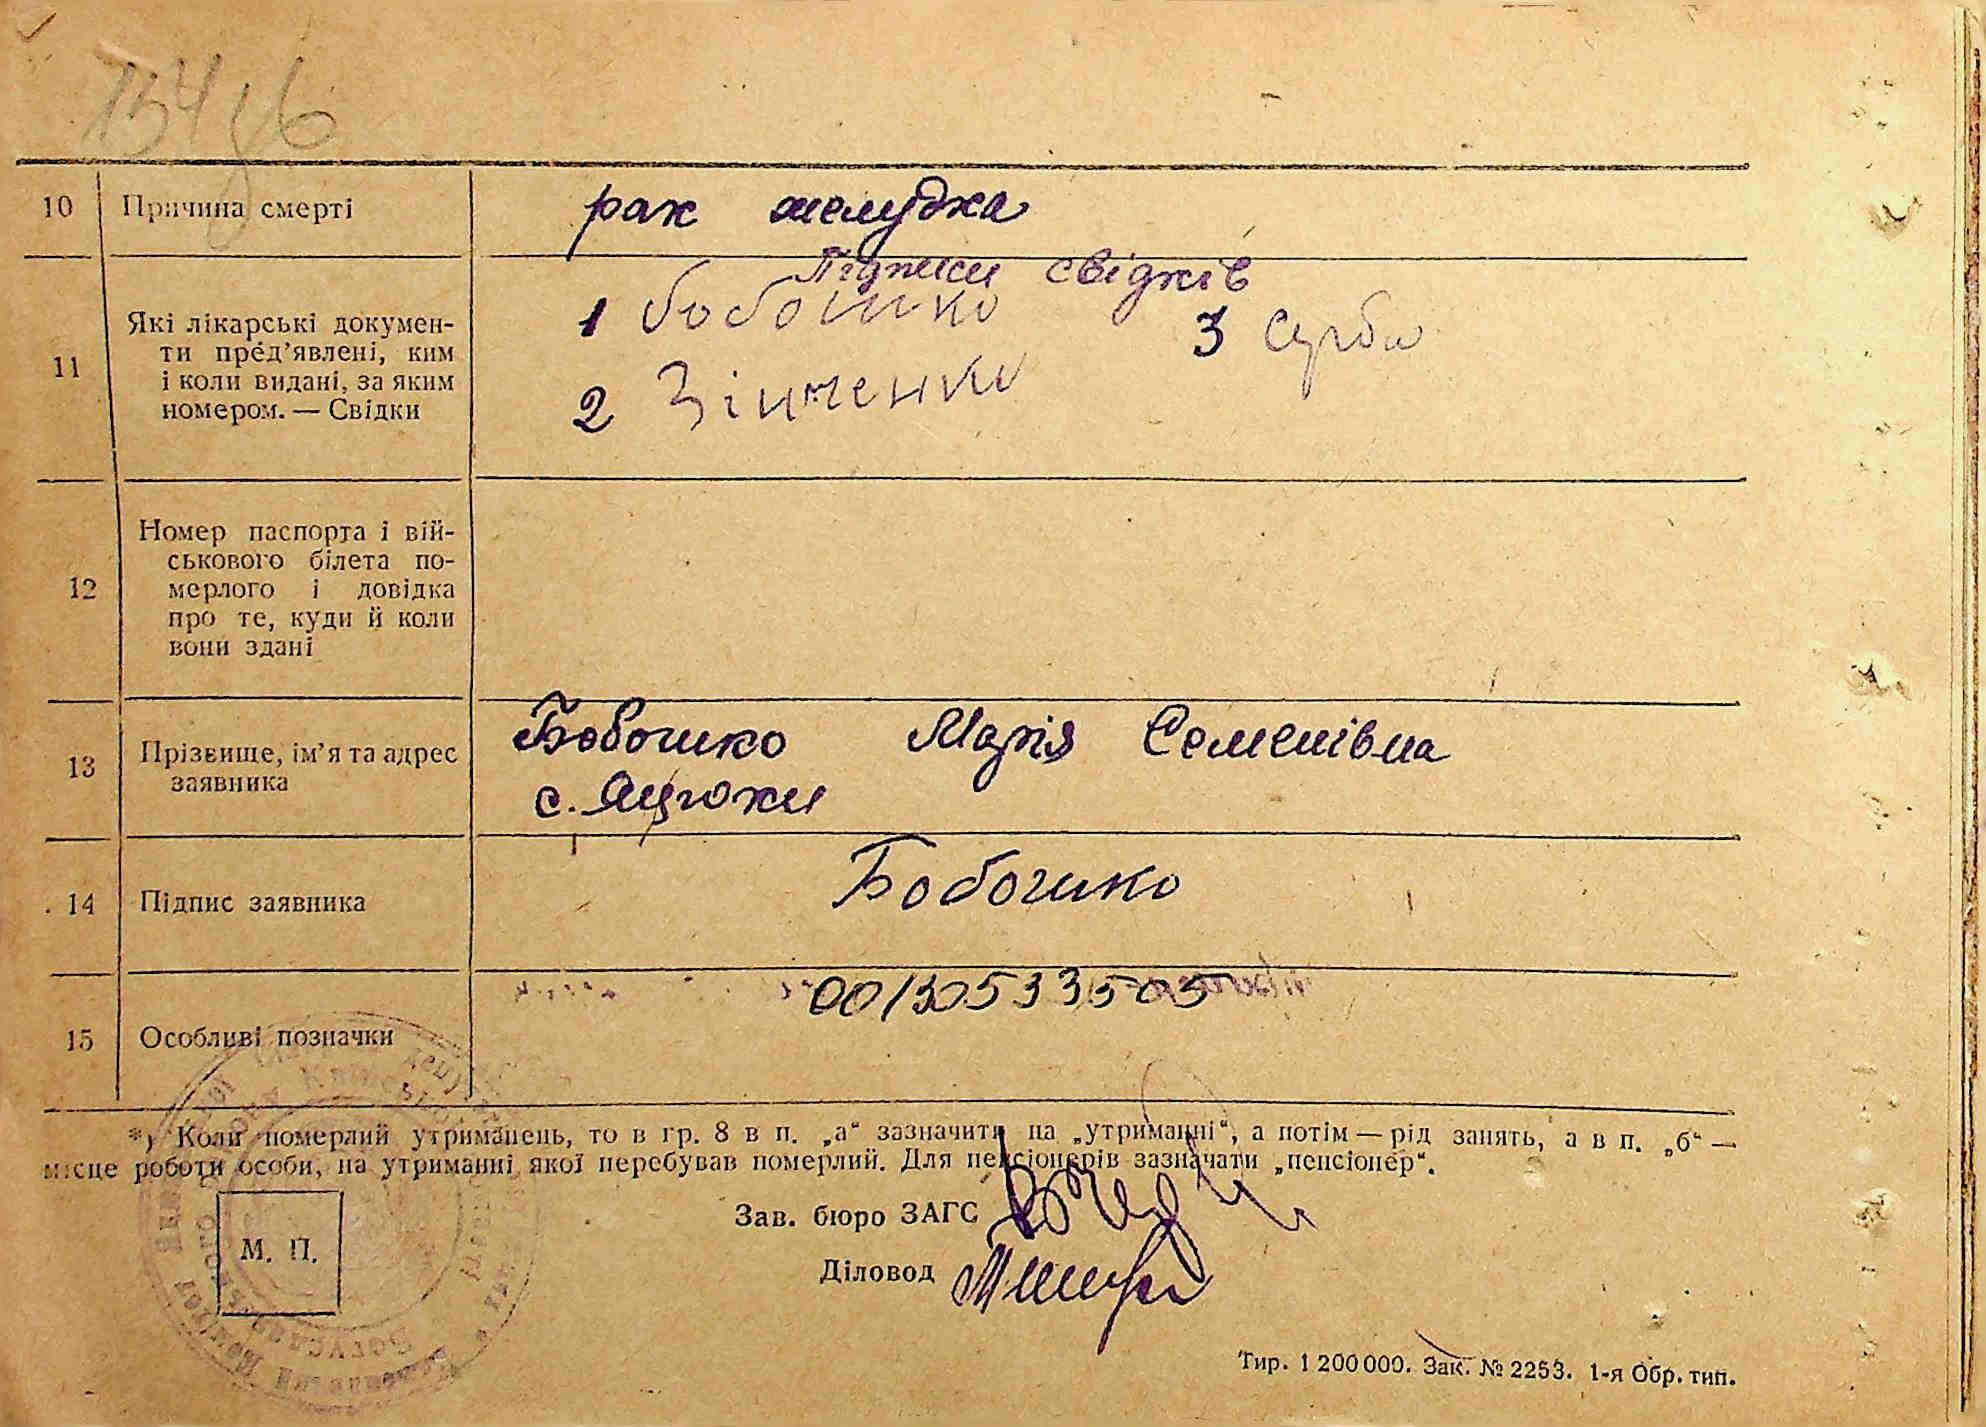 10 Причина смерті рак желудка
11 Які лікарські докумен-
ти пред'явлені, ким
і коли видані, за яким
номером. — Свідки
Підписи свідків
1 Бобошко 3 Сурба
2 Зінченко
12 Номер паспорта і вій-
ськового білета по-
мерлого і довідка
про те, куди й коли
вони здані
13 Прізвище, ім'я та адрес
заявника
Бобошко Марія Семенівна
с. Яцюки
14 Підпис заявника Бобошко
15 Особливі позначки 001305333505
*) Коли померлий утриманець, то в гр. 8 в п. „а“ зазначити на „утриманні“, а потім — рід занять, а в п. „б“ —
місце роботи особи, на утриманні якої перебував померлий. Для пенсіонерів зазначати „пенсіонер“.
Зав. бюро ЗАГС
М. П.
Діловод
Тир. 1 200 000. Зак. № 2253. 1-я Обр. тип.